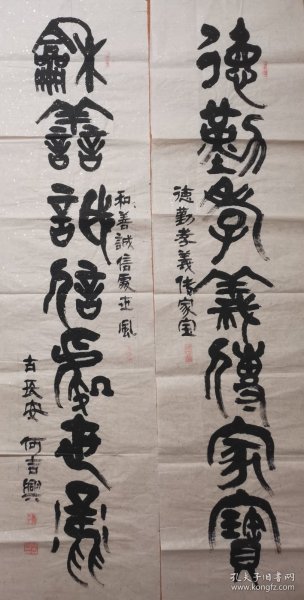 德勤孝義傳家寶
德勤孝義传家宝
龢善誠信處世風
和善誠信處世風
古長安 何吉興
孔夫子旧书网
https://www.kongfz.com